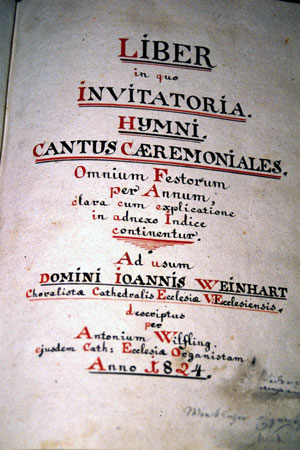 LIBER
in quo
INVITATORIA.
HYMNI.
CANTUS CÆREMONIALES.
Omnium Festorum
per Annum,
clara cum explicatione
in adnexo Indice
continentur.
Ad usum
DOMINI IOANNIS WEINHART
Choralistæ Cathedralis Ecclesiæ
descriptus
per
Antonium Wilfling.
ejusdem Cath: Ecclesiæ Organistam
Anno 1824.